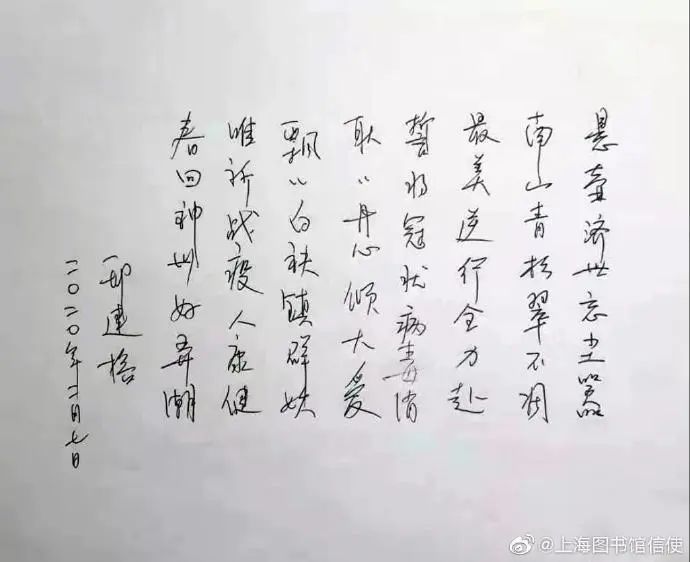 悬壶济世忘尘嚣
南山青松翠不凋
最美逆行全力赴
誓将冠状病毒消
耿〃丹心倾大爱
飘〃白袂镇群妖
唯祈战疫人康健
春回神州好弄潮
邢建榕
二〇二〇年二月七日
@上海图书馆信使